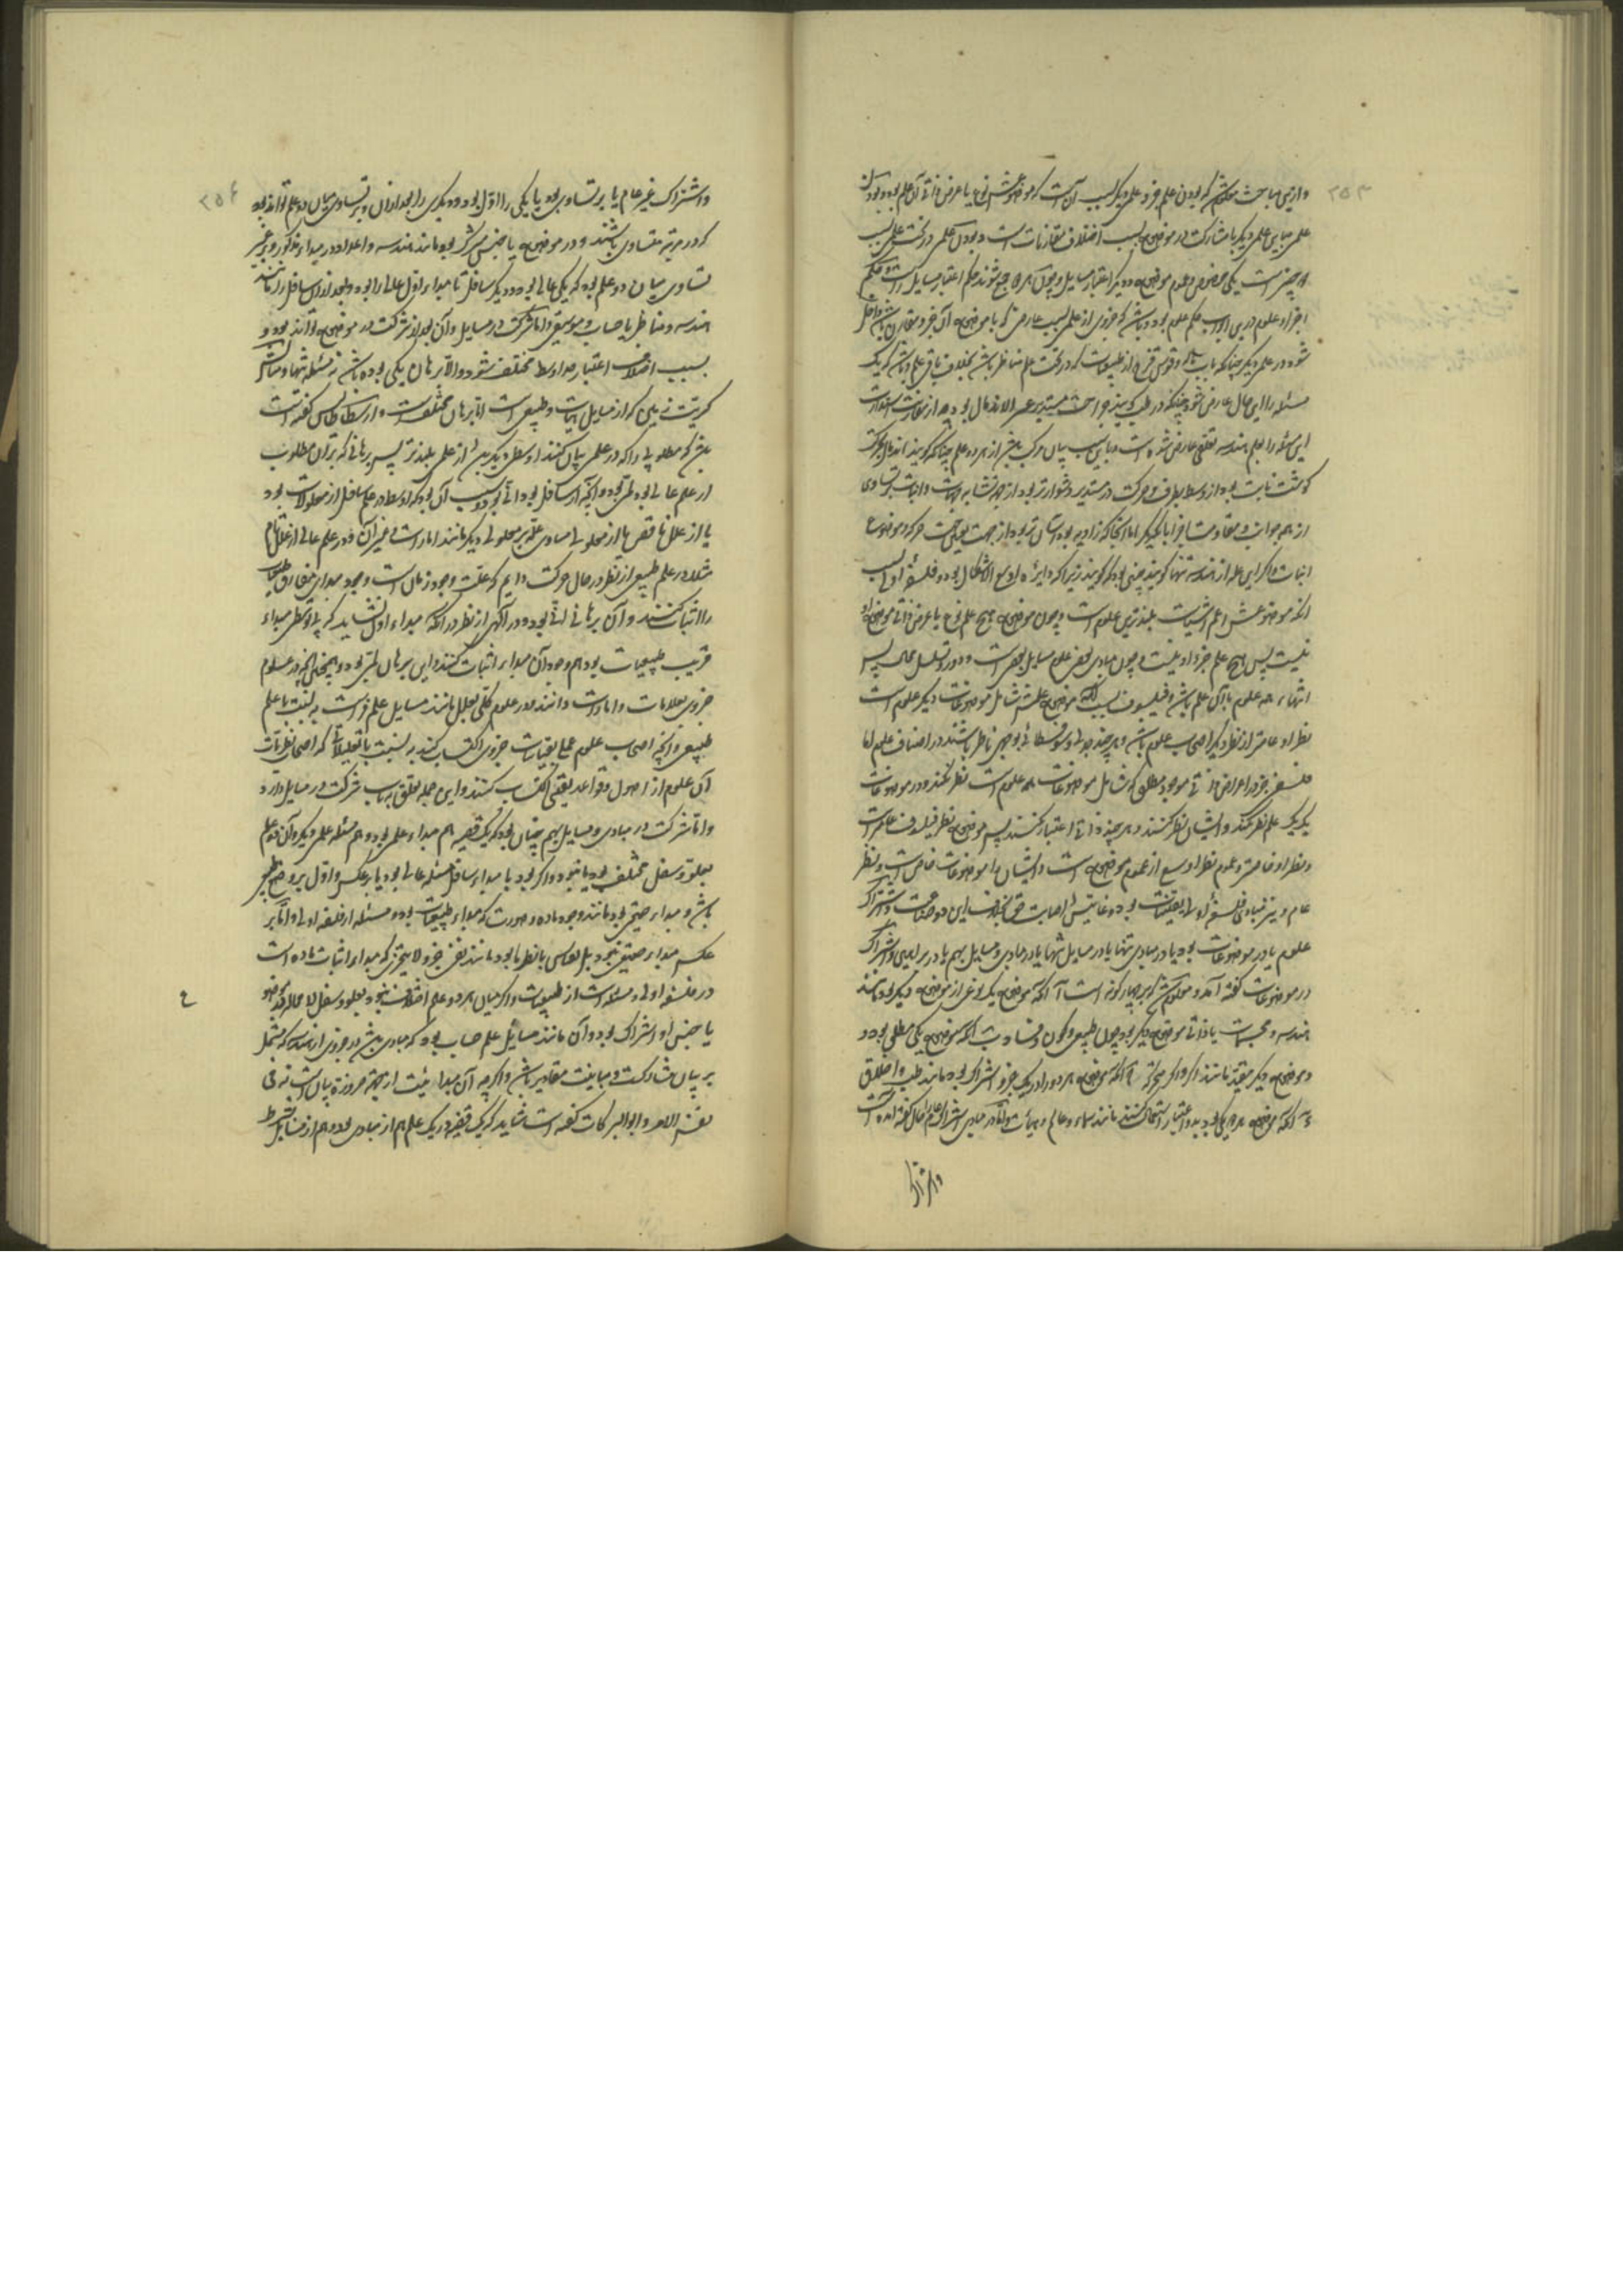 وازین مباحث معلوم شد که بودن علم جزو علمی دیگر بسبب آنست که موضوعش نوع یا عرض ذاتی آن علم بود و بودن
علمی مباین علمی دیگر با مشارکت در موضوع بسبب اختلاف مقارنات است و بودن علمی در تحت علمی بسبب
دو چیز است یکی خصوص و عموم موضوع و دیگر اعتبار مسایل و چون هر دو جمع شوند حکم اعتبار مسایل راست و حکم
اجزاء علوم درین ابواب حکم علوم بود و باشد که جزوی از علمی بسبب عارضی که با موضوع آن جزو مقارن باشد داخل
شود در علمی دیگر چنانکه باب هاله و قوس قزح از طبیعیات که در تحت علم مناظر باشد بخلاف باقی علم و باشد که یک
مسئله را این حال عارض شود چنانکه در طب گویند جراحت مستدیر عسر الاندمال بود چه از مقارنت استدارت
این مسئله را بعلم هندسه تعلقی عارض شده است و باین سبب بیان مرکب باشد از هر دو علم چنانکه گویند اندمال بحرکت
گوشت نابت بود از وسط بطرف و حرکت در مستدیر دشوارتر بود از جهت تشابه جهات و اثبات تساوی
از همه جوانب و مقاومت اجزا با یکدیگر اما آنجا که زاویه بود آسان تر بود از جهت تعین جهت حرکت و موضوع
اثبات و اگر این علم از هندسه تنها گویند چنین بود که گویند زیرا که دایره اوسع اشکال بود و فلسفه اولی بسبب
آنکه موضوعش اعم اشیاست بلندترین علوم است و چون موضوع هیچ علم نوع یا عرض ذاتی موضوع او
نیست پس هیچ علم جزو او نیست و چون مبادی بعضی علوم مسایل بعضی است و دور و تسلسل محال پس
انتهاء همه علوم با آن علم باشد و فیلسوف بسبب آنکه موضوع علمش شامل موضوعات دیگر علوم است
نظر او عامتر از نظر دیگر اصحاب علوم باشد و هر چند جدلی و سوفسطائی بوجهی ناظر باشند در اصناف علوم اما
فلسفی جز در اعراض ذاتی موجود مطلق که شامل موضوعات همه علوم است نظر نکند و در موضوعات
یک یک علم نظر نکند و ایشان نظر کنند و هر چه ذاتی اعتبار کنند پس موضوع نظر فیلسوف عامتر است
و نظر او خاصتر و عموم نظر اوسع از عموم موضوع است و ایشان را موضوعات خاص است و نظر
عام و نیز مبادی فلسفه اولی یقینیات بود و غایتش اصابت حق بخلاف این دو صناعت و اشتراک
علوم یا در موضوعات بود یا در مبادی تنها یا در مسایل تنها یا در مبادی و مسایل بهم یا در براهین و اشتراک
در موضوعات گفته آمد و معلوم شد که بر چهار گونه است آ آنکه موضوع یکی نوعی از موضوع دیگر بود مانند
هندسه و مجسمات یا ذاتی موضوع دیگر بود چون طبیعی و کون و فساد ب آنکه موضوع یکی مطلق بود و
موضوع دیگر مقید مانند اکر و اکر متحرکه ج آنکه موضوع هر دو را در یک جزو اشتراک بود مانند طب و اخلاق
د آنکه موضوع هر دو یکی بود و بدو اعتبار استعمال کنند مانند سماء و عالم و هیأت و اما در مبادی اشتراک عام را حال گفته آمده است
و اشتراک
واشتراک غیر عام یا بر تساوی بود یا یکی را اول بود و دیگری را بعد از آن و بر تساوی میان دو علم تواند بود
که در مرتبه متساوی باشند و در موضوع یا جنس مشترک بود مانند هندسه و اعداد در مبداء مذکور و بر غیر
تساوی میان دو علم بود که یکی عالی بود و دیگر سافل تا مبداء اول عالی را بود و بعد از آن سافل را مانند
هندسه و مناظر یا حساب و موسیقی و اما شرکت در مسایل و آن بعد از شرکت در موضوع تواند بود و
بسبب اختلاف اعتبار حد اوسط مختلف شود و الا برهان یکی بوده باشد نه مسئله تنها و مثالش
کریت زمین که از مسایل هیأت و طبیعی است اما برهان مختلف است و ارسطاطالیس گفته است
باشد که مطلوبی را که در علمی بیان کنند اوسطی دیگر بود از علمی بلندتر پس برهانی که بر آن مطلوب
از علم عالی بود لمی بود و آنچه از سافل بود انی بود و سبب آن بود که اوسط در علم سافل از معلولات بود
یا از علل ناقص یا از معلولی مساوی علت بر معلولی دیگر مانند امارات و غیر آن و در علم عالی از علل تام
مثلا در علم طبیعی از نظر در حال حرکت دایم که علت وجود زمان است وجود مبدائی مفارق طبیعیات
را اثبات کنند و آن برهانی انی بود و در الهی از نظر در آنکه مبداء اول نشاید که بی توسطی مبداء
قریب طبیعیات بود هم وجود آن مبداء اثبات کنند و این برهان لمی بود و همچنین آنچه در علوم
جزوی بعلامات و امارات دانند و در علوم کلی بعلل مانند مسایل علم فراست به نسبت با علم
طبیعی و آنچه اصحاب علوم عملی بتجربیات جزوی اکتساب کنند به نسبت با تعلیلاتی که اصحاب نظریات
آن علوم از اصول و قواعد یقینی اکتساب کنند و این جمله تعلق به باب شرکت در مسایل دارد
و اما شرکت در مبادی و مسایل بهم چنان بود که یک قضیه هم مبداء علمی بود و هم مسئله علمی دیگر و آن دو علم
بعلو و سفل مختلف بود یا نبود و اگر بود یا مبداء سافل مسئله عالی بود یا برعکس و اول بر وضع طبیعی
باشد و مبداء حقیقی بود مانند وجود ماده و صورت که مبداء طبیعیات بود و مسئله از فلسفه اولی و اما بر
عکس مبداء حقیقی نبود بل بقیاس با نظر ما بود مانند نفی جزو لا یتجزی که مبداء اثبات ماده است
در فلسفه اولی و مسئله است از طبیعیات و اگر میان هر دو علم اختلاف نبود بعلو و سفل لامحاله در موضوع
یا جنس او اشتراک بود و آن مانند مسایل علم حساب بود که مبادی باشد در جزوی از هندسه که مشتمل
بر بیان مشارکت و مباینت مقادیر باشد و اگر چه آن مبدائیت از جهت ضرورت بیان است نه فی
نفس الامر و ابوالبرکات گفته است شاید که یک قضیه در یک علم هم از مبادی بود و هم از مسایل بشرط